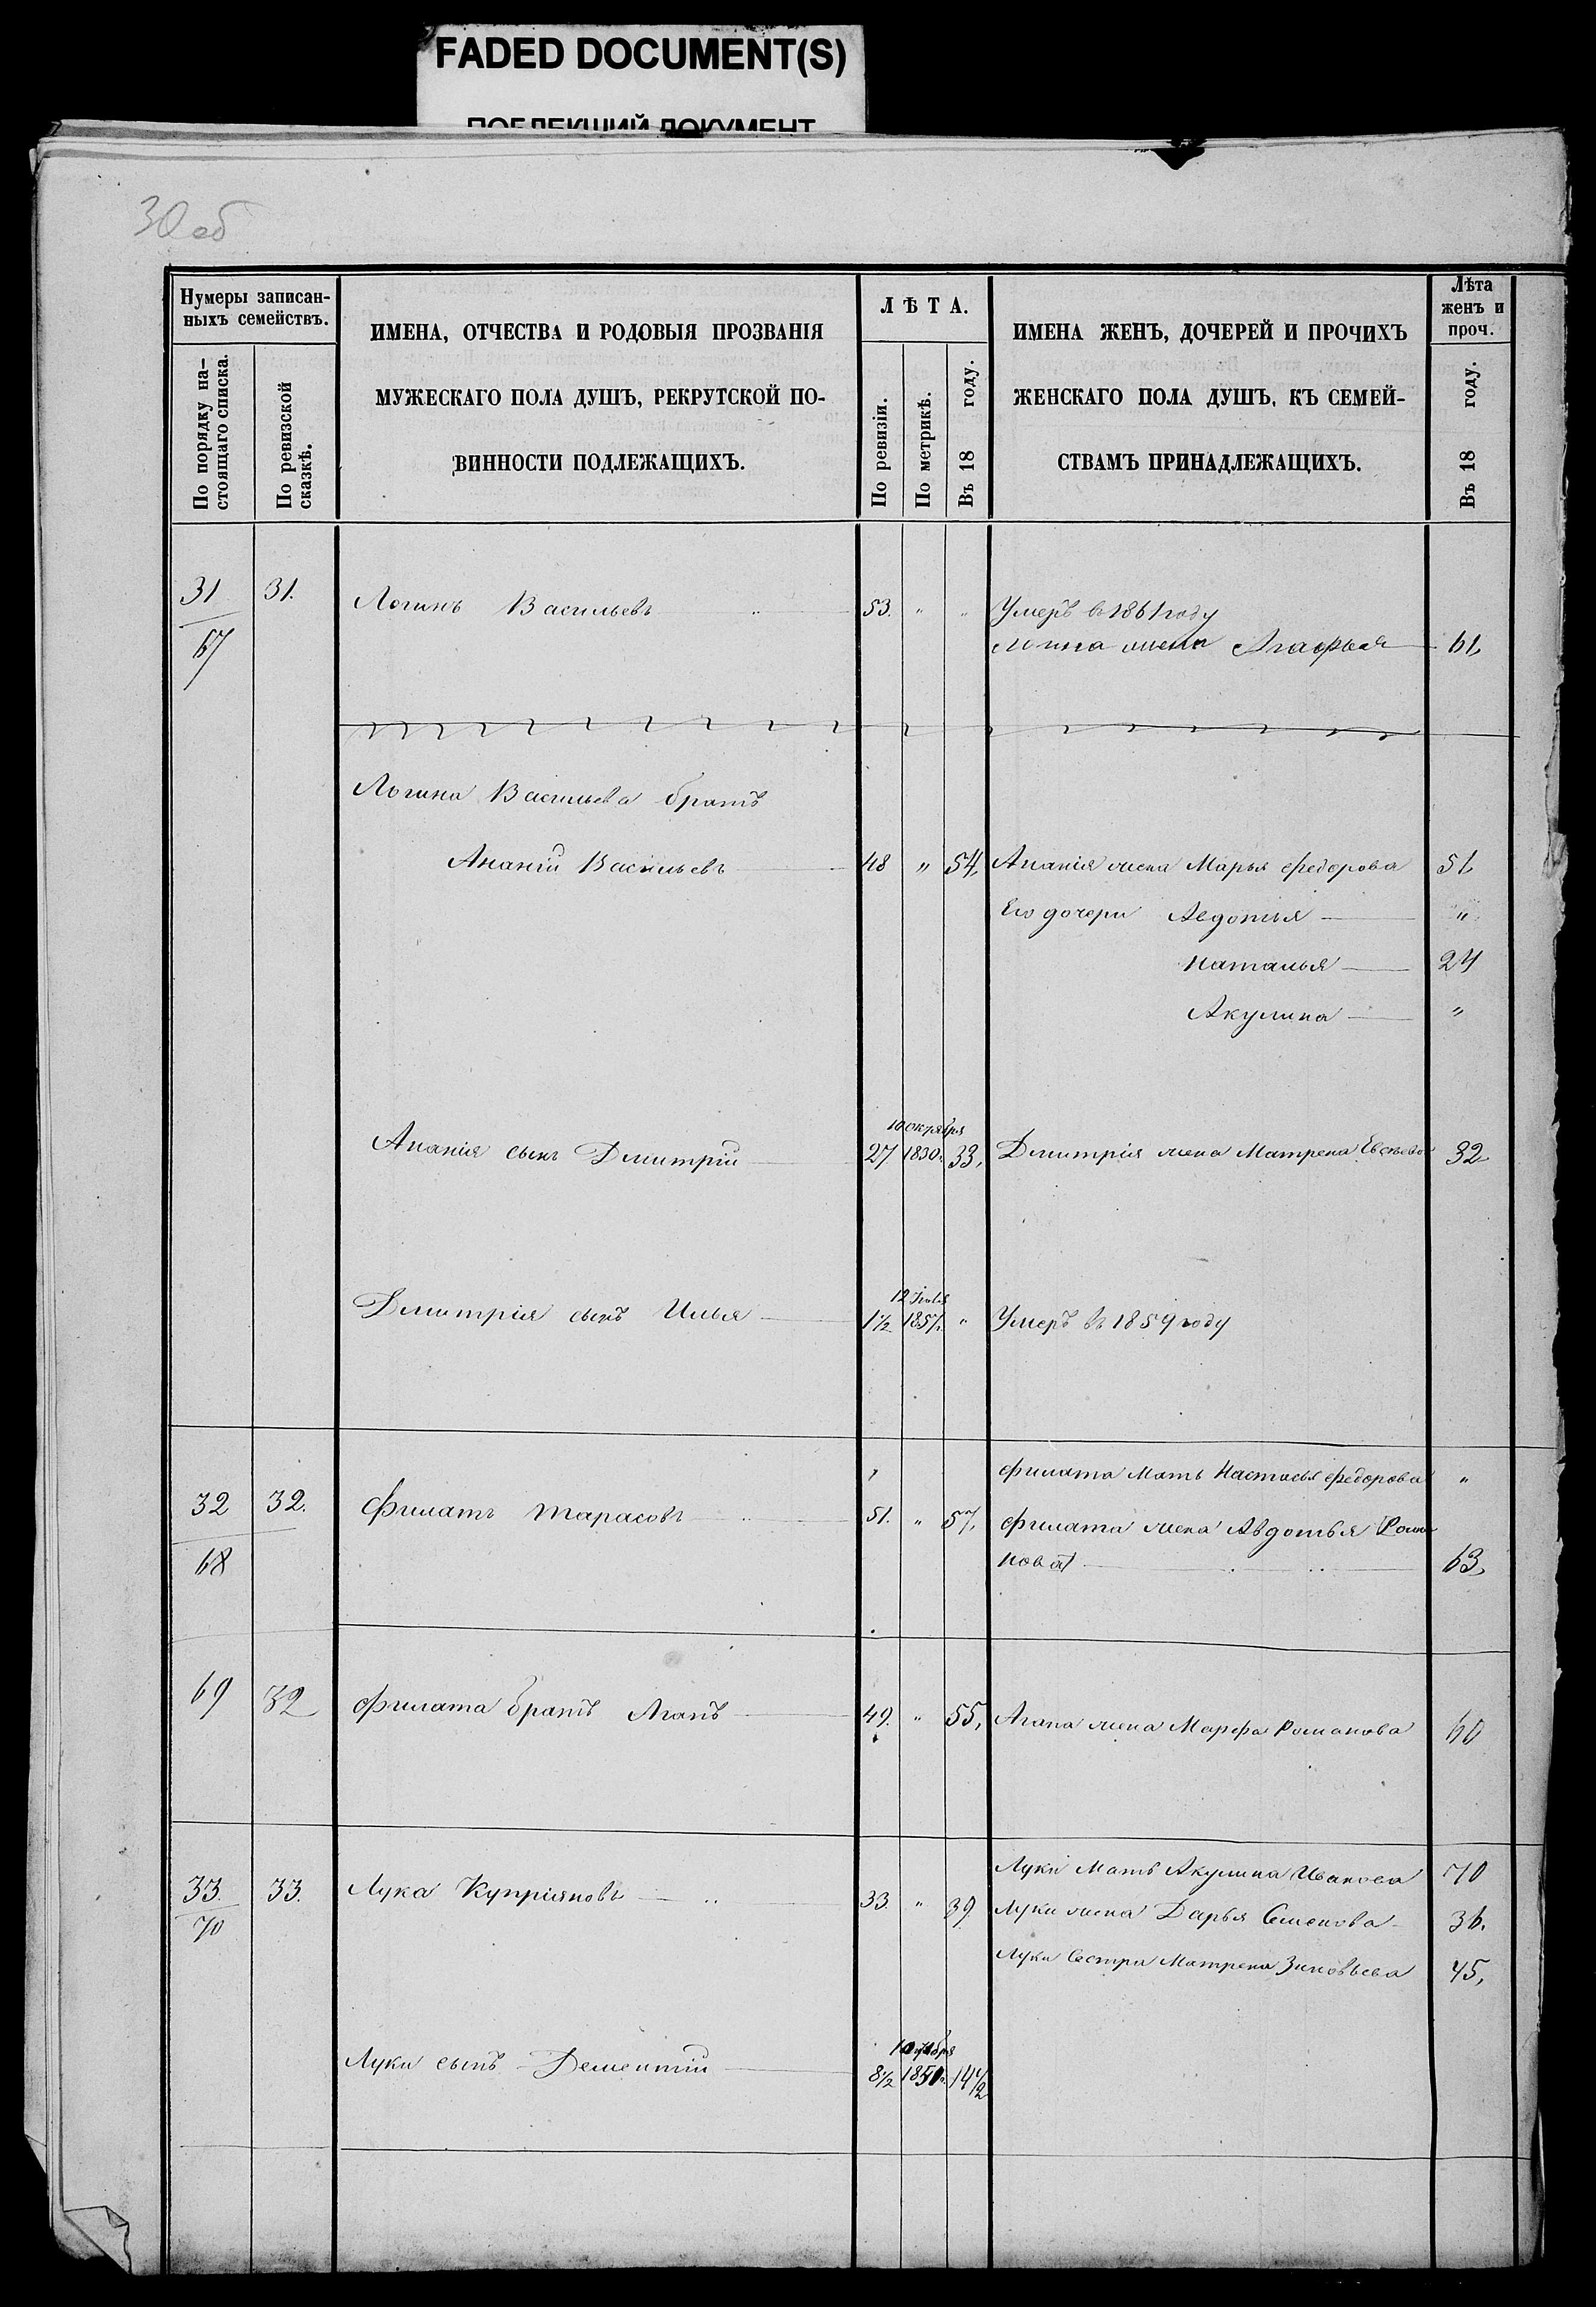 FADED DOCUMENT(S)
ПОБЛЕКШИЙ ДОКУМЕНТ
30 об
Нумеры записан-
ныхъ семействъ.
По порядку на-
стоящаго списка.
По ревизской
сказкѣ.
ИМЕНА, ОТЧЕСТВА И РОДОВЫЯ ПРОЗВАНІЯ
МУЖЕСКАГО ПОЛА ДУШЪ, РЕКРУТСКОЙ ПО-
ВИННОСТИ ПОДЛЕЖАЩИХЪ.
ЛѢТА.
По ревизіи.
По метрикѣ.
Въ 18 году.
ИМЕНА ЖЕНЪ, ДОЧЕРЕЙ И ПРОЧИХЪ
ЖЕНСКАГО ПОЛА ДУШЪ, КЪ СЕМЕЙ-
СТВАМЪ ПРИНАДЛЕЖАЩИХЪ.
Лѣта
женъ и
проч.
Въ 18 году.
31 31. Логинъ Васильевъ 53. " " Умеръ въ 1861 году
67 Логина жена Агафья 61,
Логина Васильева братъ
Ананій Васильевъ 48 " 54, Ананія жена Марья Федорова 51,
Его дочери Авдотья "
Наталья 24
Акулина "
10 октября
Ананія сынъ Дмитрій 27 1830г. 33, Дмитрія жена Матрена 32
12 Іюля
Дмитрія сынъ Илья 1½ 1857г. " Умеръ въ 1859 году
Филата Мать Настасья Федорова "
32 32. Филатъ Тарасовъ 51. " 57, Филата жена Авдотья Рома
68 нова 63,
69 32 Филата братъ Агапъ 49. " 55, Агапа жена Марфа Романова 60
Луки Мать Акулина Иванова 70
33. 33. Лука Купріяновъ 33. " 39 Луки жена Дарья Семенова 36.
70
Луки Сестра Матрена Зиновьева 45,
Луки сынъ Дементій 8½ 1850г. 14½